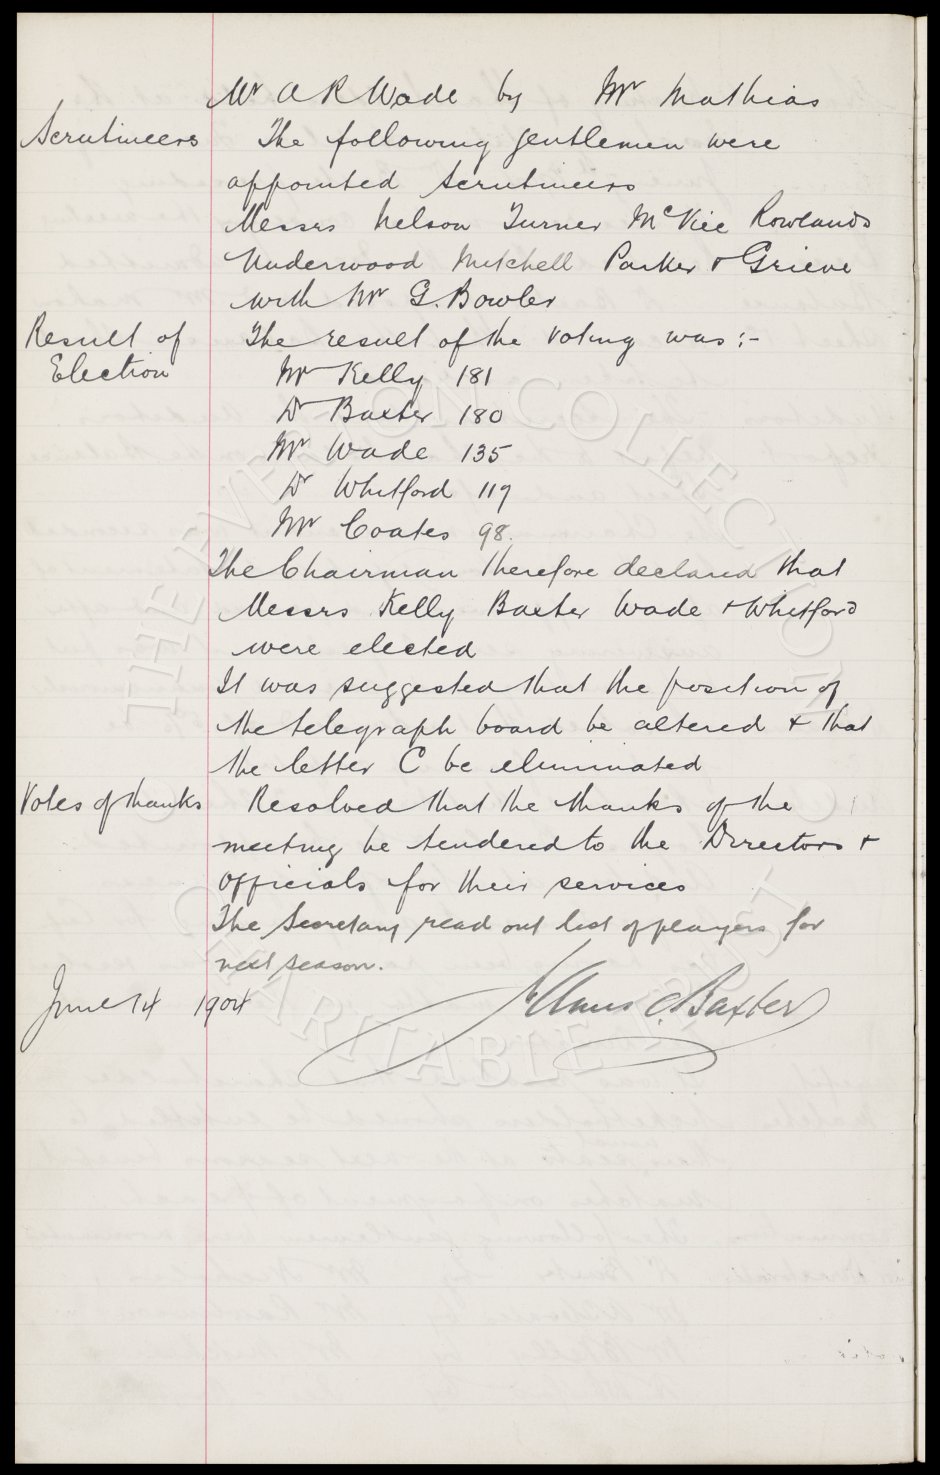 Mr A R Wade by Mr Mathias
Scrutineers The following gentlemen were
appointed Scrutineers
Messrs Nelson Turner McKie Rowlands
Underwood Mitchell Parker & Grieve
with Mr G. Bowler
Result of The result of the voting was :-
Election Mr Kelly 181
Dr Baxter 180
Mr Wade 135
Dr Whitford 119
Mr Coates 98.
The Chairman therefore declared that
Messrs Kelly Baxter Wade & Whitford
were elected
It was suggested that the position of
the telegraph board be altered & that
the letter C be eliminated
Votes of thanks Resolved that the thanks of the
meeting be tendered to the Directors &
Officials for their services
The Secretary read out list of players for
next season.
June 14 1904 Baxter
THE EVERTON COLLECTION
CHARITABLE TRUST